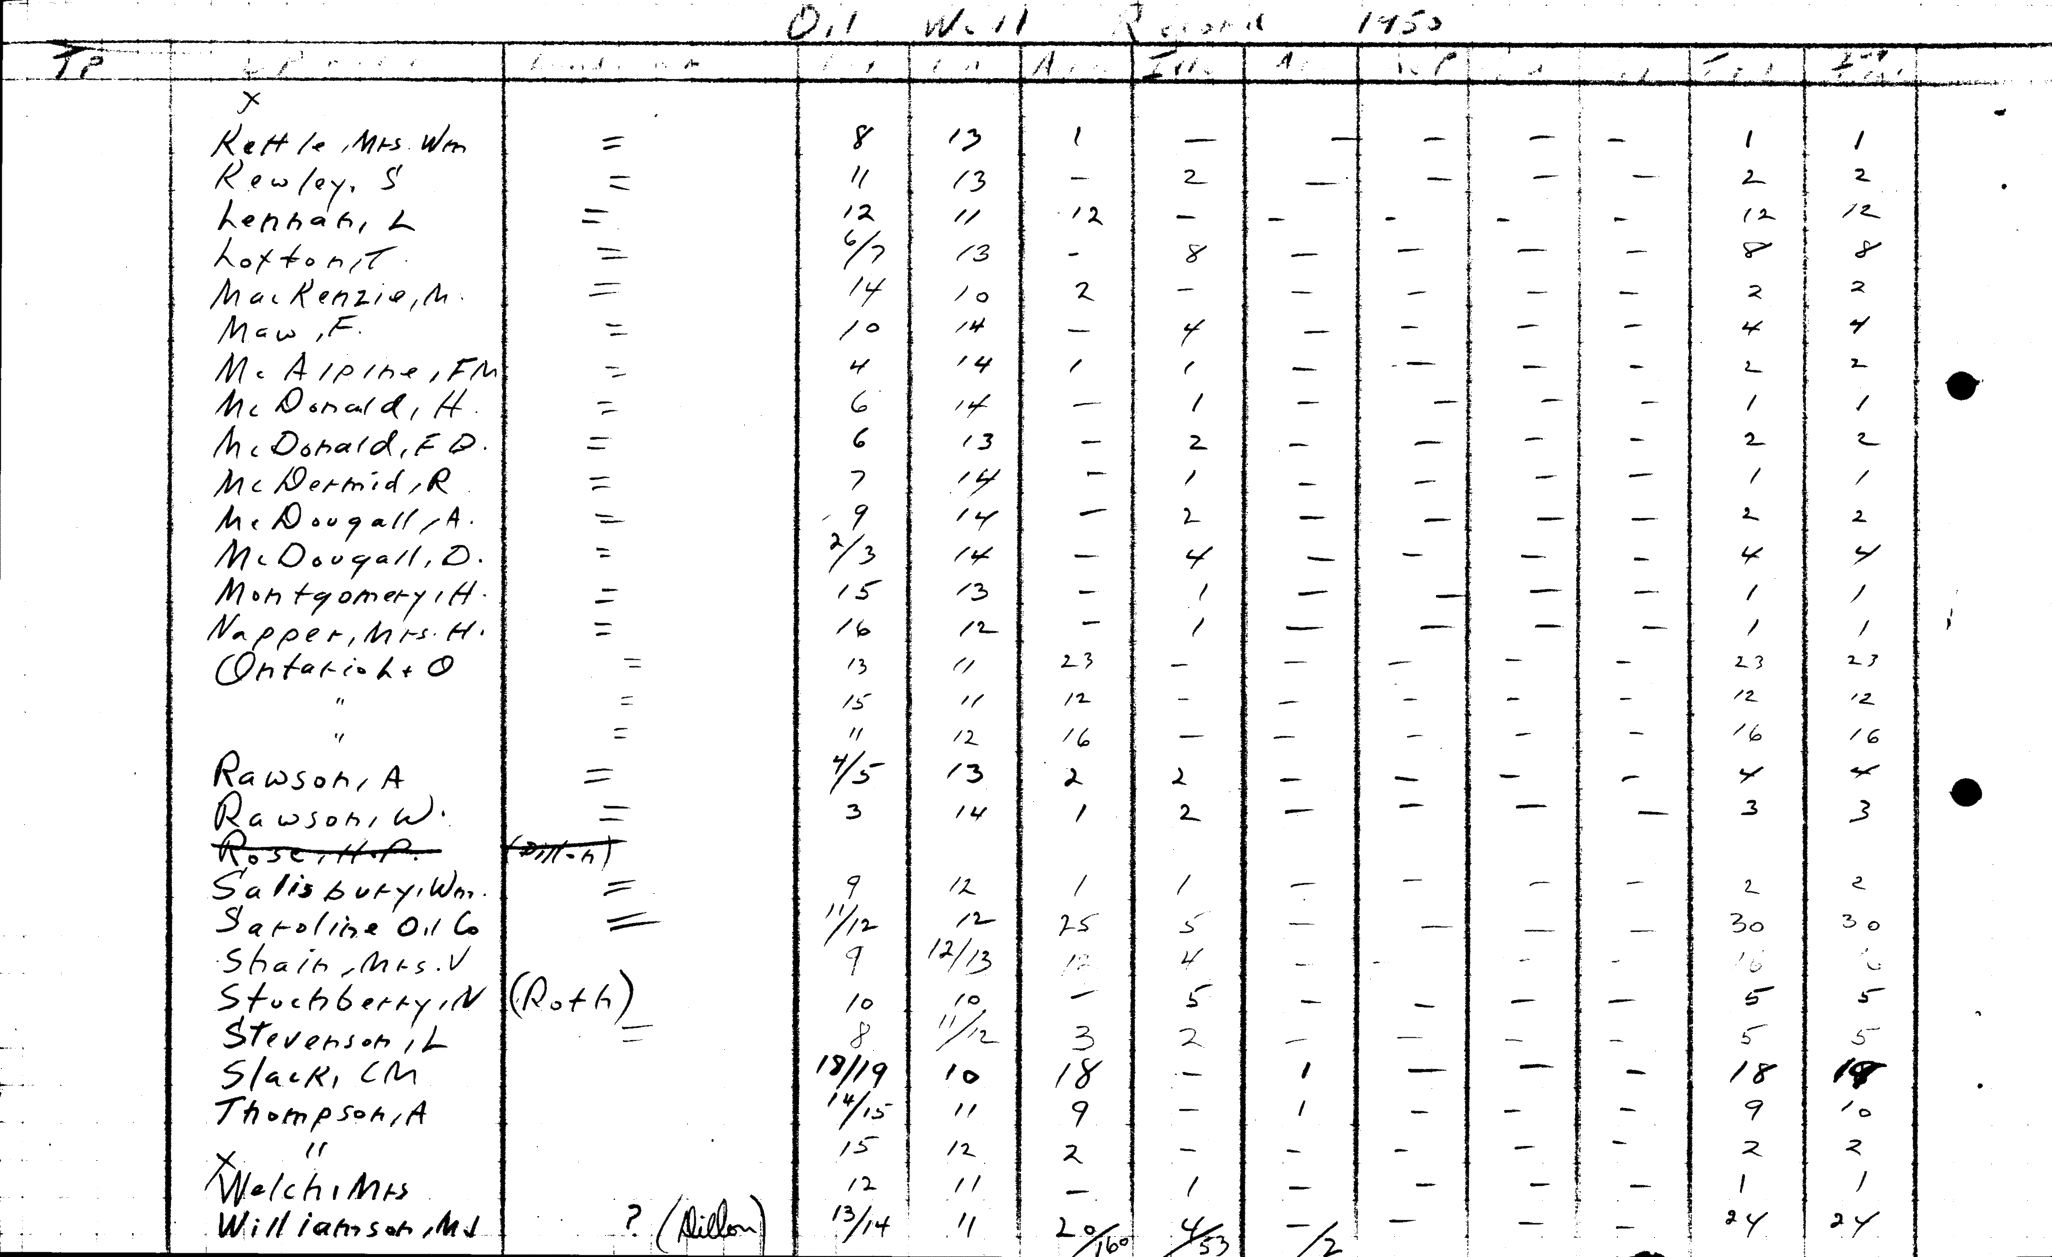 Oil Well Record 1950
TP
x
Kettle, Mrs. Wm = 8 13 1 — — — — — 1 1
Kewley, S = 11 13 - 2 — — — — 2 2
Lennan, L = 12 11 12 - - - - - 12 12
Loxton, T. = 6/7 13 - 8 — — — — 8 8
MacKenzie, M. = 14 10 2 - — — — — 2 2
Maw, F. = 10 14 — 4 — — — — 4 4
McAlpine, FM = 4 14 1 1 — — — — 2 2
McDonald, H. = 6 14 — 1 — — — — 1 1
McDonald, ED. = 6 13 - 2 - — — — 2 2
McDermid, R = 7 14 - 1 - — — — 1 1
McDougall, A. = 9 14 — 2 — — — — 2 2
McDougall, D. = 2/3 14 — 4 — — — — 4 4
Montgomery, H. = 15 13 - 1 — — — — 1 1
Napper, Mrs. H. = 16 12 - 1 — — — — 1 1
Ontario L + O = 13 11 23 - — — — — 23 23
" = 15 11 12 - — - - - 12 12
" = 11 12 16 — — - - - 16 16
Rawson, A = 4/5 13 2 2 — — — — 4 4
Rawson, W. = 3 14 1 2 — — — — 3 3
Rose, H.P. (Dillon)
Salisbury, Wm. = 9 12 1 1 — — — — 2 2
Saroline Oil Co = 11/12 12 25 5 — — — — 30 30
Shain, Mrs. V 9 12/13 12 4 - - - - 16 16
Stuchberry, N (Roth) 10 10 - 5 — — — — 5 5
Stevenson, L = 8 11/12 3 2 - - - - 5 5
Slack, CM 18/19 10 18 - 1 — — — 18
Thompson, A 14/15 11 9 - 1 - - - 9 10
" 15 12 2 - - - - - 2 2
x Welch, Mrs 12 11 — 1 — — — — 1 1
Williamson, MJ ? (Dillon) 13/14 11 20/160 4/53 -/2 — — — 24 24